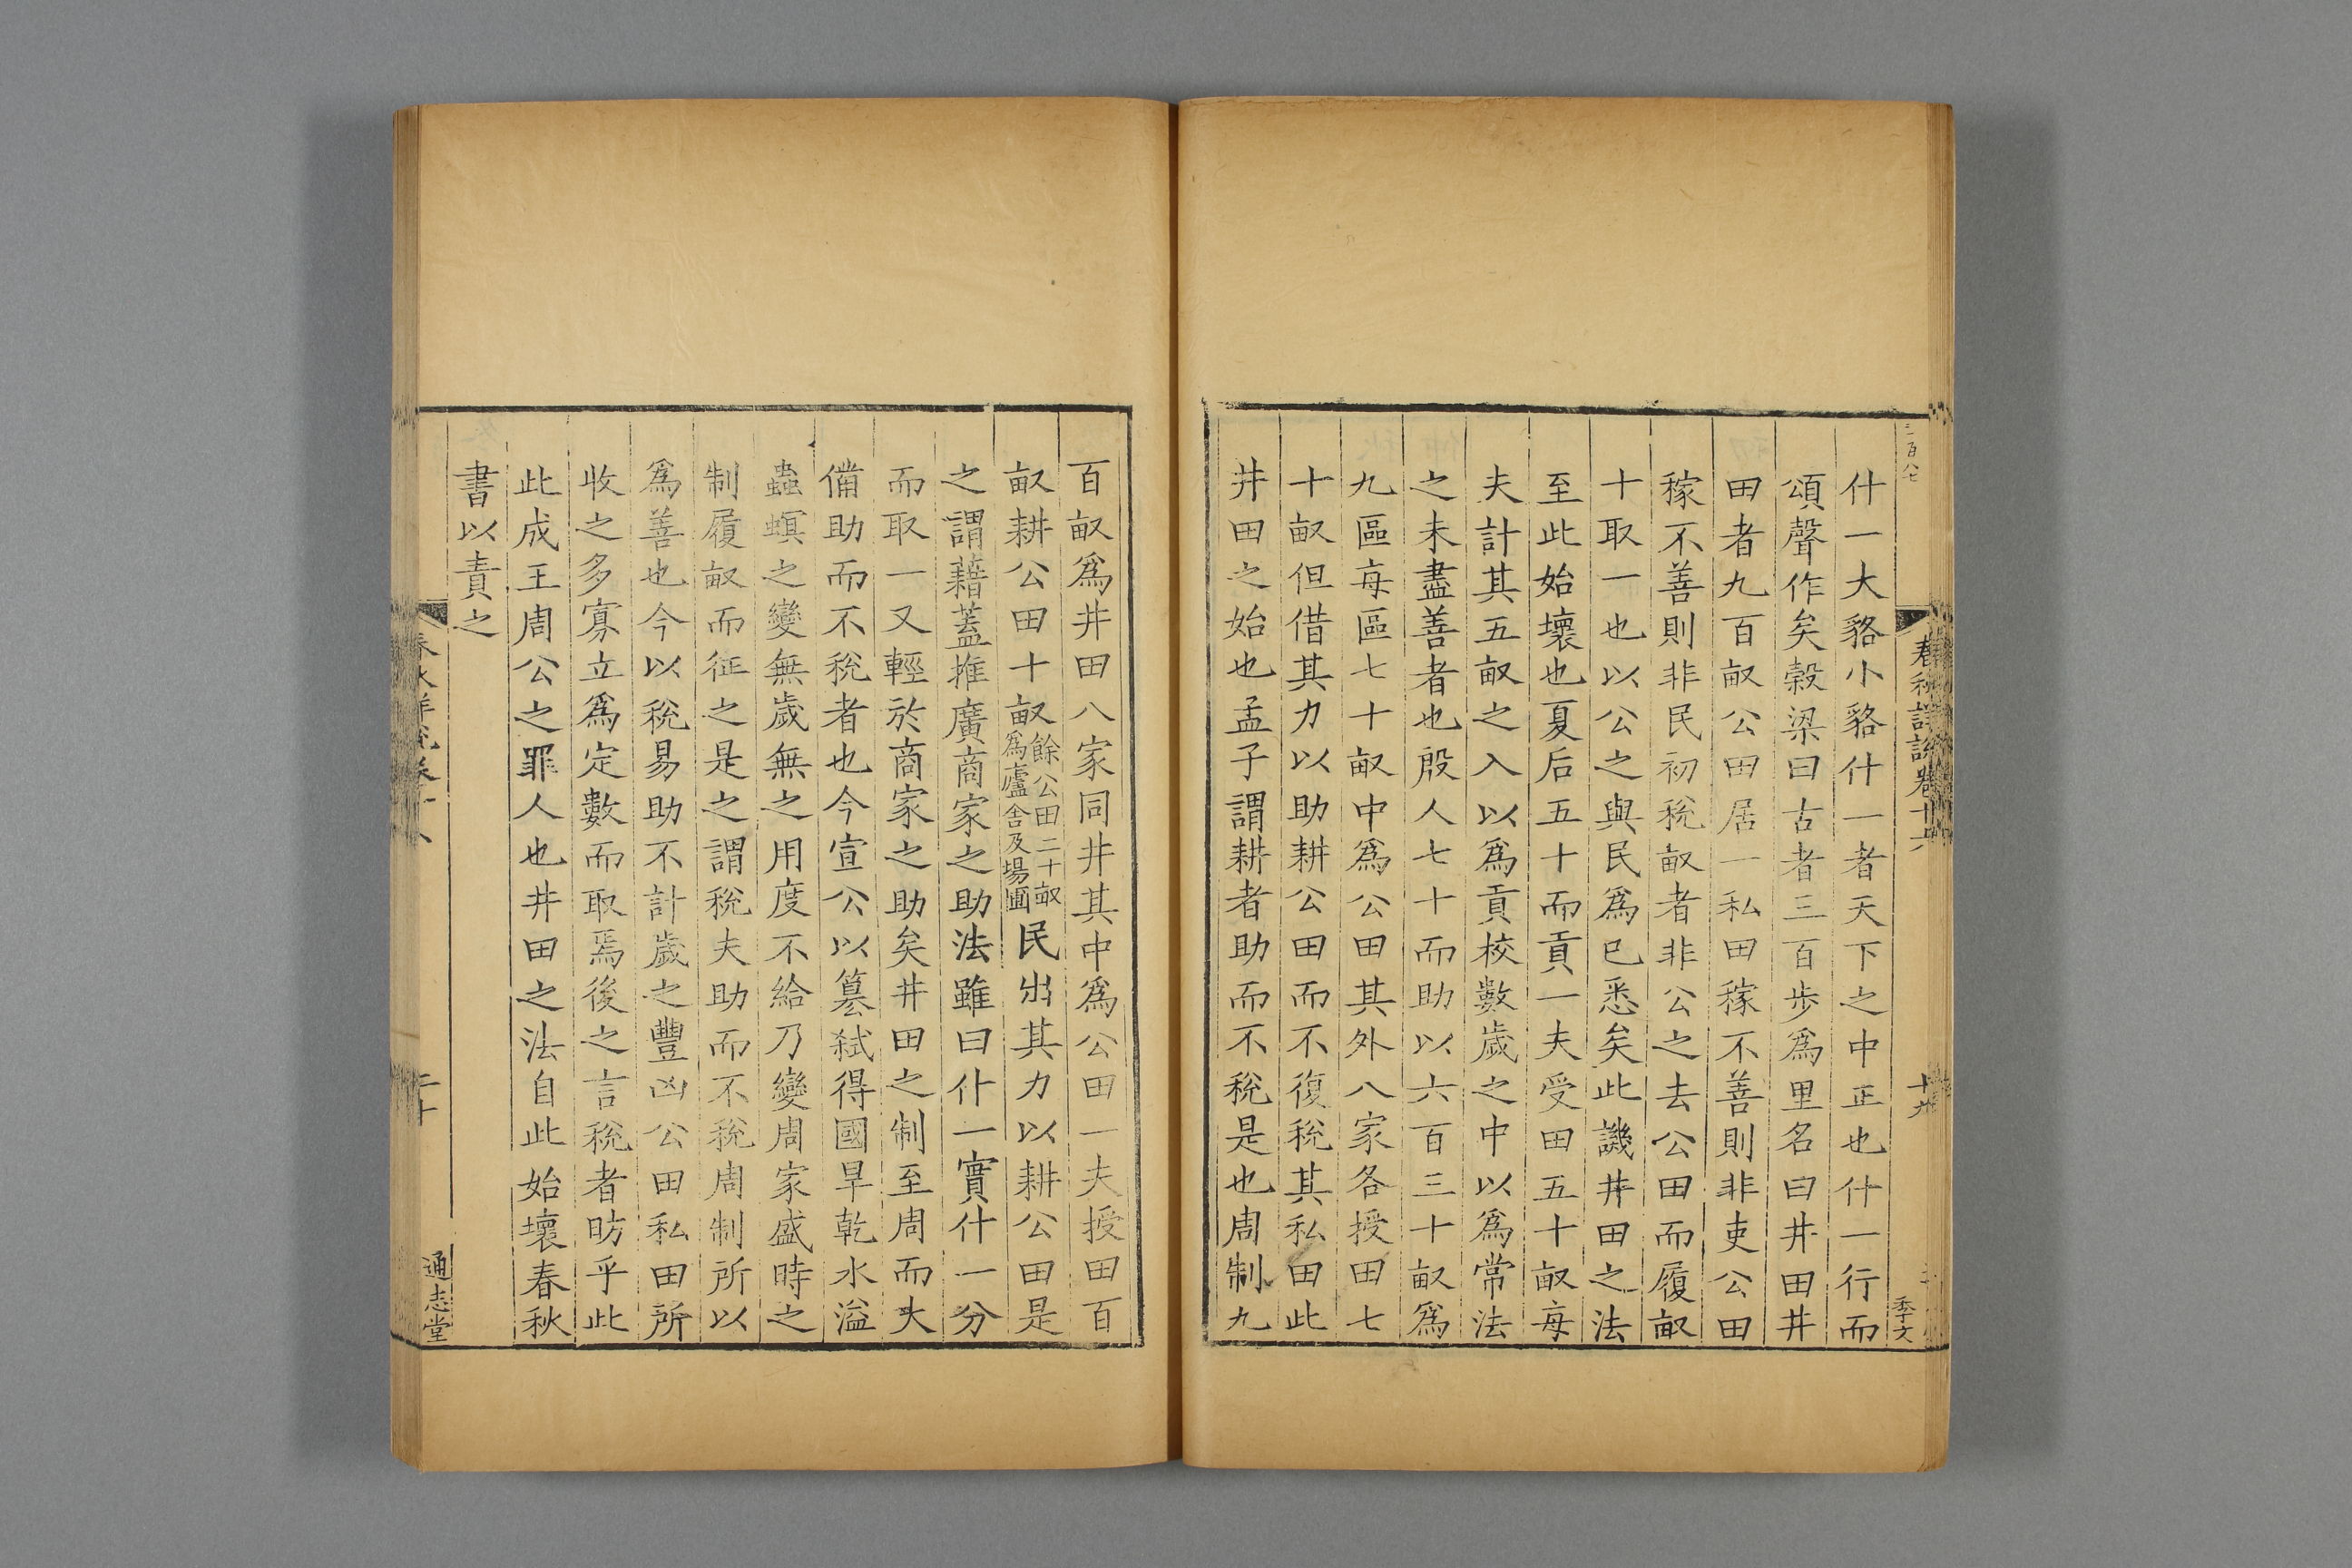 三百八七
春秋詳說卷十六
十九
季文
什一大貉小貉什一者天下之中正也什一行而
頌聲作矣榖梁曰古者三百步爲里名曰井田井
田者九百畝公田居一私田稼不善則非吏公田
稼不善則非民初稅畝者非公之去公田而履畝
十取一也以公之與民爲已悉矣此譏井田之法
至此始壞也夏后五十而貢一夫受田五十畝每
夫計其五畝之入以爲貢校數歲之中以爲常法
之未盡善者也殷人七十而助以六百三十畝爲
九區每區七十畝中爲公田其外八家各授田七
十畝但借其力以助耕公田而不復稅其私田此
井田之始也孟子謂耕者助而不稅是也周制九
百畝爲井田八家同井其中爲公田一夫授田百
畝耕公田十畝餘公田二十畝爲廬舍及場圃民出其力以耕公田是
之謂藉蓋推廣商家之助法雖曰什一實什一分
而取一又輕於商家之助矣井田之制至周而大
備助而不稅者也今宣公以簒弑得國旱乾水溢
蟲螟之變無歲無之用度不給乃變周家盛時之
制履畝而征之是之謂稅夫助而不稅周制所以
爲善也今以稅易助不計歲之豐凶公田私田所
收之多寡立爲定數而取焉後之言稅者昉乎此
此成王周公之罪人也井田之法自此始壞春秋
書以責之
春秋詳說卷十六
二十
通志堂